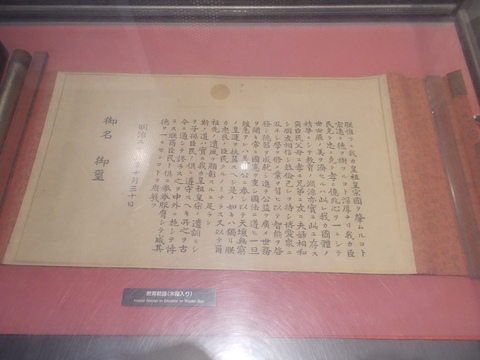 朕惟フニ我カ皇祖皇宗國ヲ肇ムルコト
宏遠ニ德ヲ樹ツルコト深厚ナリ我カ臣
民克ク忠ニ克ク孝ニ億兆心ヲ一ニシテ
世世厥ノ美ヲ濟セルハ此レ我カ國體ノ
精華ニシテ教育ノ淵源亦實ニ此ニ存ス
爾臣民父母ニ孝ニ兄弟ニ友ニ夫婦相和
シ朋友相信シ恭儉己レヲ持シ博愛衆ニ
及ホシ學ヲ修メ業ヲ習ヒ以テ智能ヲ啓
發シ德器ヲ成就シ進テ公益ヲ廣メ世務
ヲ開キ常ニ國憲ヲ重シ國法ニ遵ヒ一旦
緩急アレハ義勇公ニ奉シ以テ天壤無窮
ノ皇運ヲ扶翼スヘシ是ノ如キハ獨リ朕
カ忠良ノ臣民タルノミナラス又以テ爾
祖先ノ遺風ヲ顯彰スルニ足ラン
斯ノ道ハ實ニ我カ皇祖皇宗ノ遺訓ニシ
テ子孫臣民ノ俱ニ遵守スヘキ所之ヲ古
今ニ通シテ謬ラス之ヲ中外ニ施シテ悖
ラス朕爾臣民ト俱ニ拳々服膺シテ咸其
德ヲ一ニセンコトヲ庶幾フ
明治二十三年十月三十日
御名 御璽
教育勅語(木箱入り)
Imperial Rescript on Education in Wooden Box